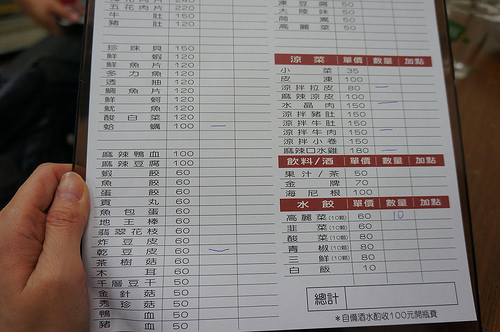 五花肉片 120
牛肚 150
珍珠貝 150
鮮蝦 120
鮮魚片 120
多力魚 150
透抽 150
鯛魚片 120
鮮蚵 120
魷魚 120
酸白菜 120
蛤蠣 100 —
麻辣鴨血 100
麻辣豆腐 100
蝦餃 60
魚餃 60
蛋餃 60
貢丸 60
魚包蛋 60
地王棒 60
翡翠花枝 60
炸豆皮 60
乾豆皮 60
茶樹菇 60
木耳 60
千層豆干 50
金針菇 50
秀珍菇 50
鴨血 50
凍豆腐 50
大陸妹 50
茼蒿 50
高麗菜 50
涼菜 單價 數量 加點
小菜 35
皮凍 100
涼拌拉皮 80 —
麻辣涼皮 100
水晶肉 150 —
涼拌豬肚 150
涼拌牛肚 150
涼拌牛肉 150 —
涼拌小卷 150
麻辣口水雞 180 —
飲料/酒 單價 數量 加點
果汁/茶 50
金牌 70
海尼根 100
水餃 單價 數量 加點
高麗菜(10顆) 60 10
韭菜(10顆) 60
酸菜(10顆) 80
青椒(10顆) 80
三鮮(10顆) 80
白飯 10
總計
*自備酒水酌收100元開瓶費